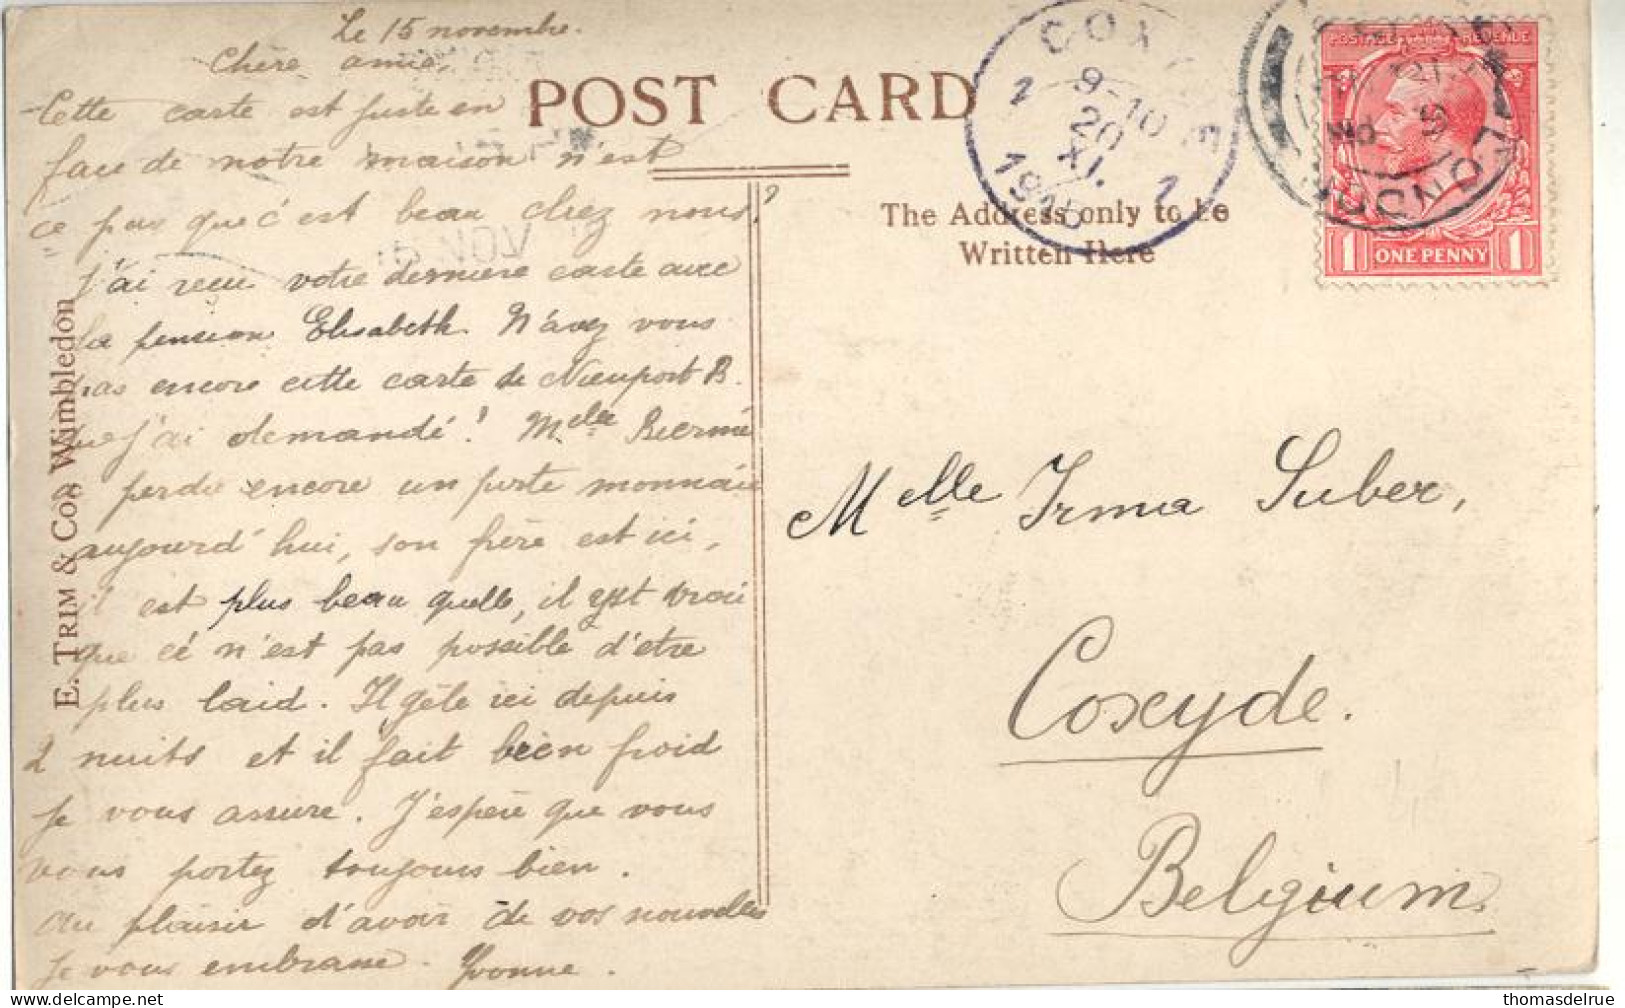 Le 15 novembre.
Chère amie,
Cette carte est juste en
face de notre maison n'est
ce pas que c'est beau chez nous?
J'ai recu votre derniere carte avec
la pension Elisabeth. N'avez vous
pas encore cette carte de Nieuport B.
que j'ai demandé! Melle
perdu encore un porte monnaie
aujourd'hui, son frère est ici,
il est plus beau quelle, il est vrai
que cé n'est pas possible d'etre
plus laid. Il gèle ici depuis
2 nuits et il fait bien froid
je vous assure. J'espère que vous
vous portez toujours bien.
Au plaisir d'avoir de vos nouvelles
Je vous embrasse. Yvonne.
E. TRIM & Co. Wimbledon
POST CARD
The Address only to be
Written Here
COXYDE
9-10
20
XI.
1
1
15 NOV
LONDON
POSTAGE REVENUE
1 ONE PENNY 1
Melle Irma Suber,
Coxyde.
Belgium.
thomasdelrue